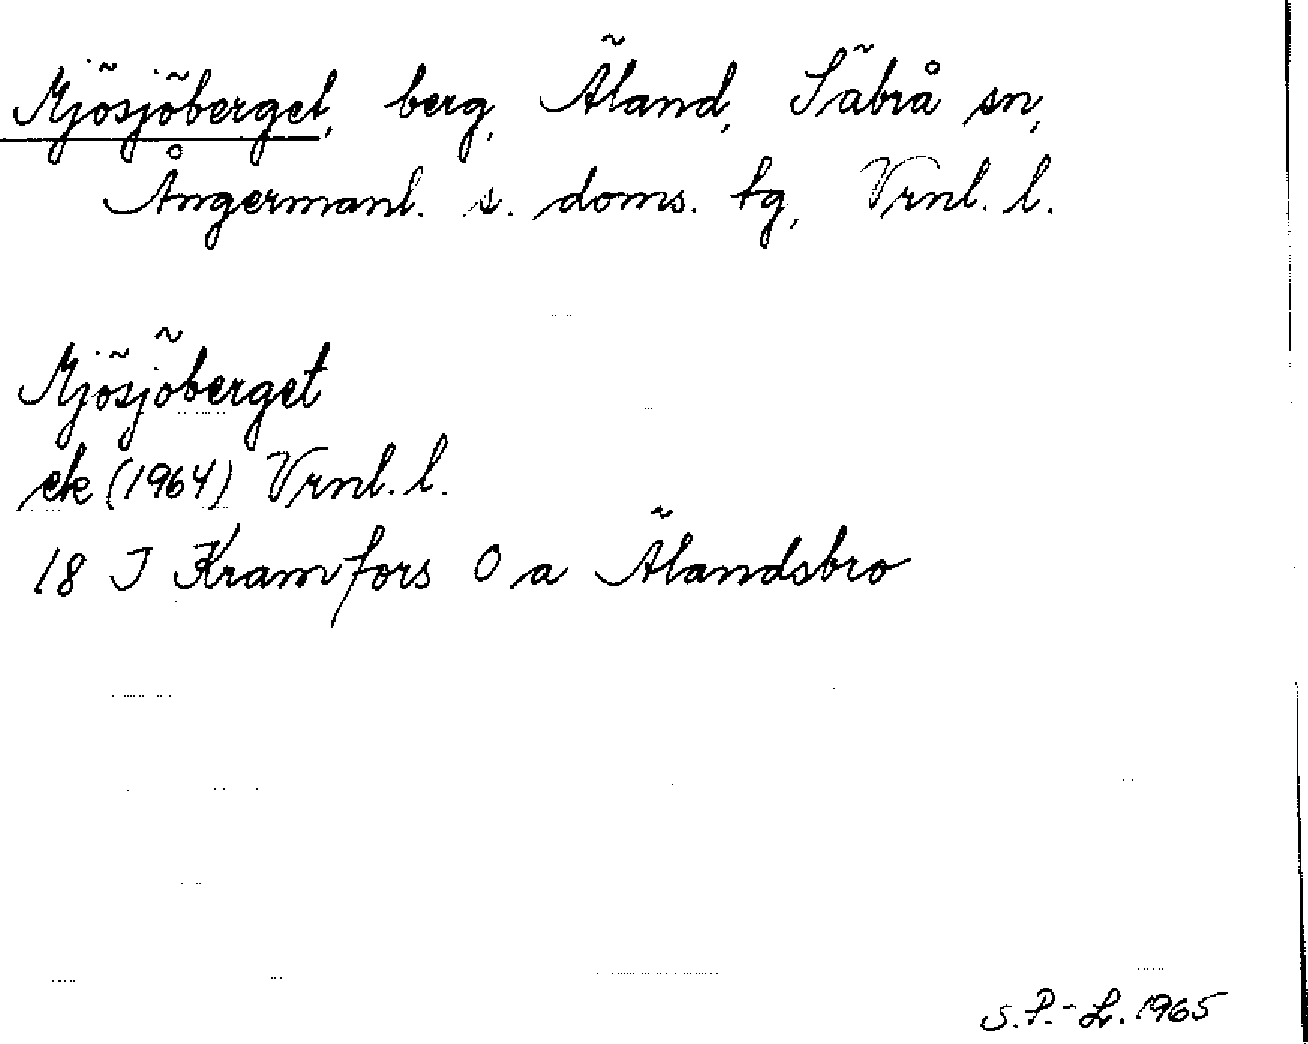 Mjösjöberget, berg, Äland, Säbrå sn,
Ångermanl. s. doms. tg, Vrnl. l.
Mjösjöberget
ek (1964) Vrnl. l.
18 I Kramfors O a Älandsbro
S.P.-L. 1965